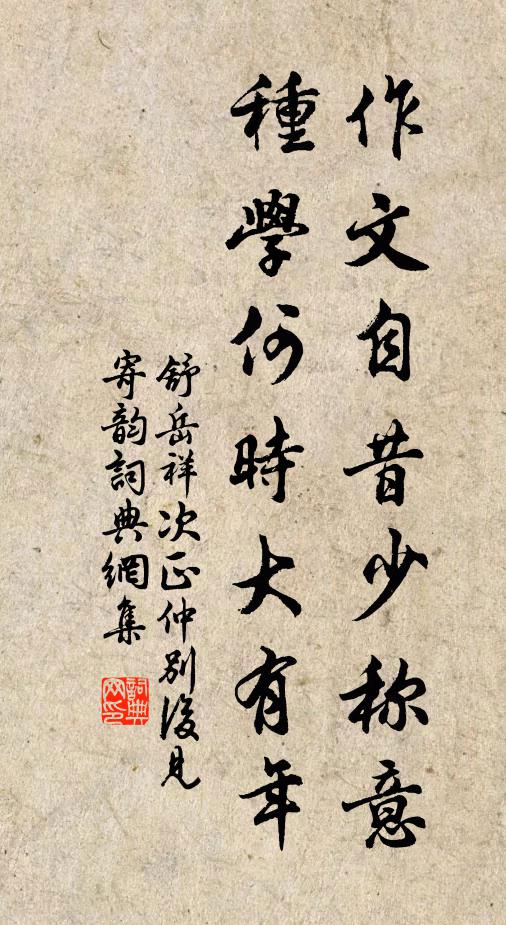 作文自昔少称意
種學何時大有年
舒岳祥次正仲別後見
寄韵詞典網集
詞典網印